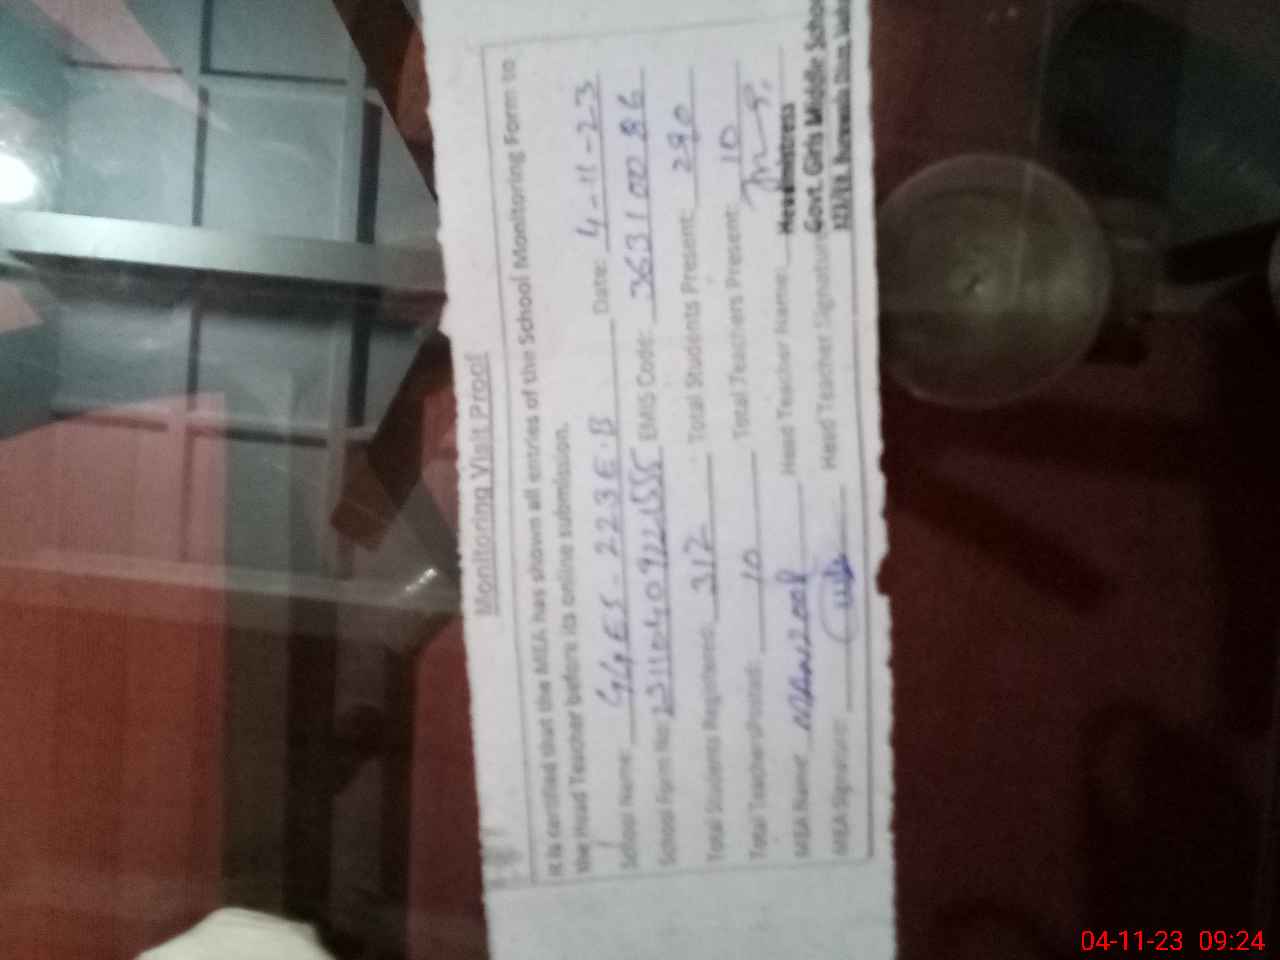 Monitoring Visit Proof
It is certified that the MEA has shown all entries of the School Monitoring Form to
the Head Teacher before its online submission.
School Name: GGES - 223 E.B Date: 4-11-23
School Form No: EMIS Code: 36310086
Total Students Registered: 312 Total Students Present: 290
Total Teachers Posted: 10 Total Teachers Present: 10
MEA Name: MANZOOR Head Teacher Name:
MEA Signature: Head Teacher Signature
Headmistress
Govt. Girls Middle Scho
04-11-23 09:24